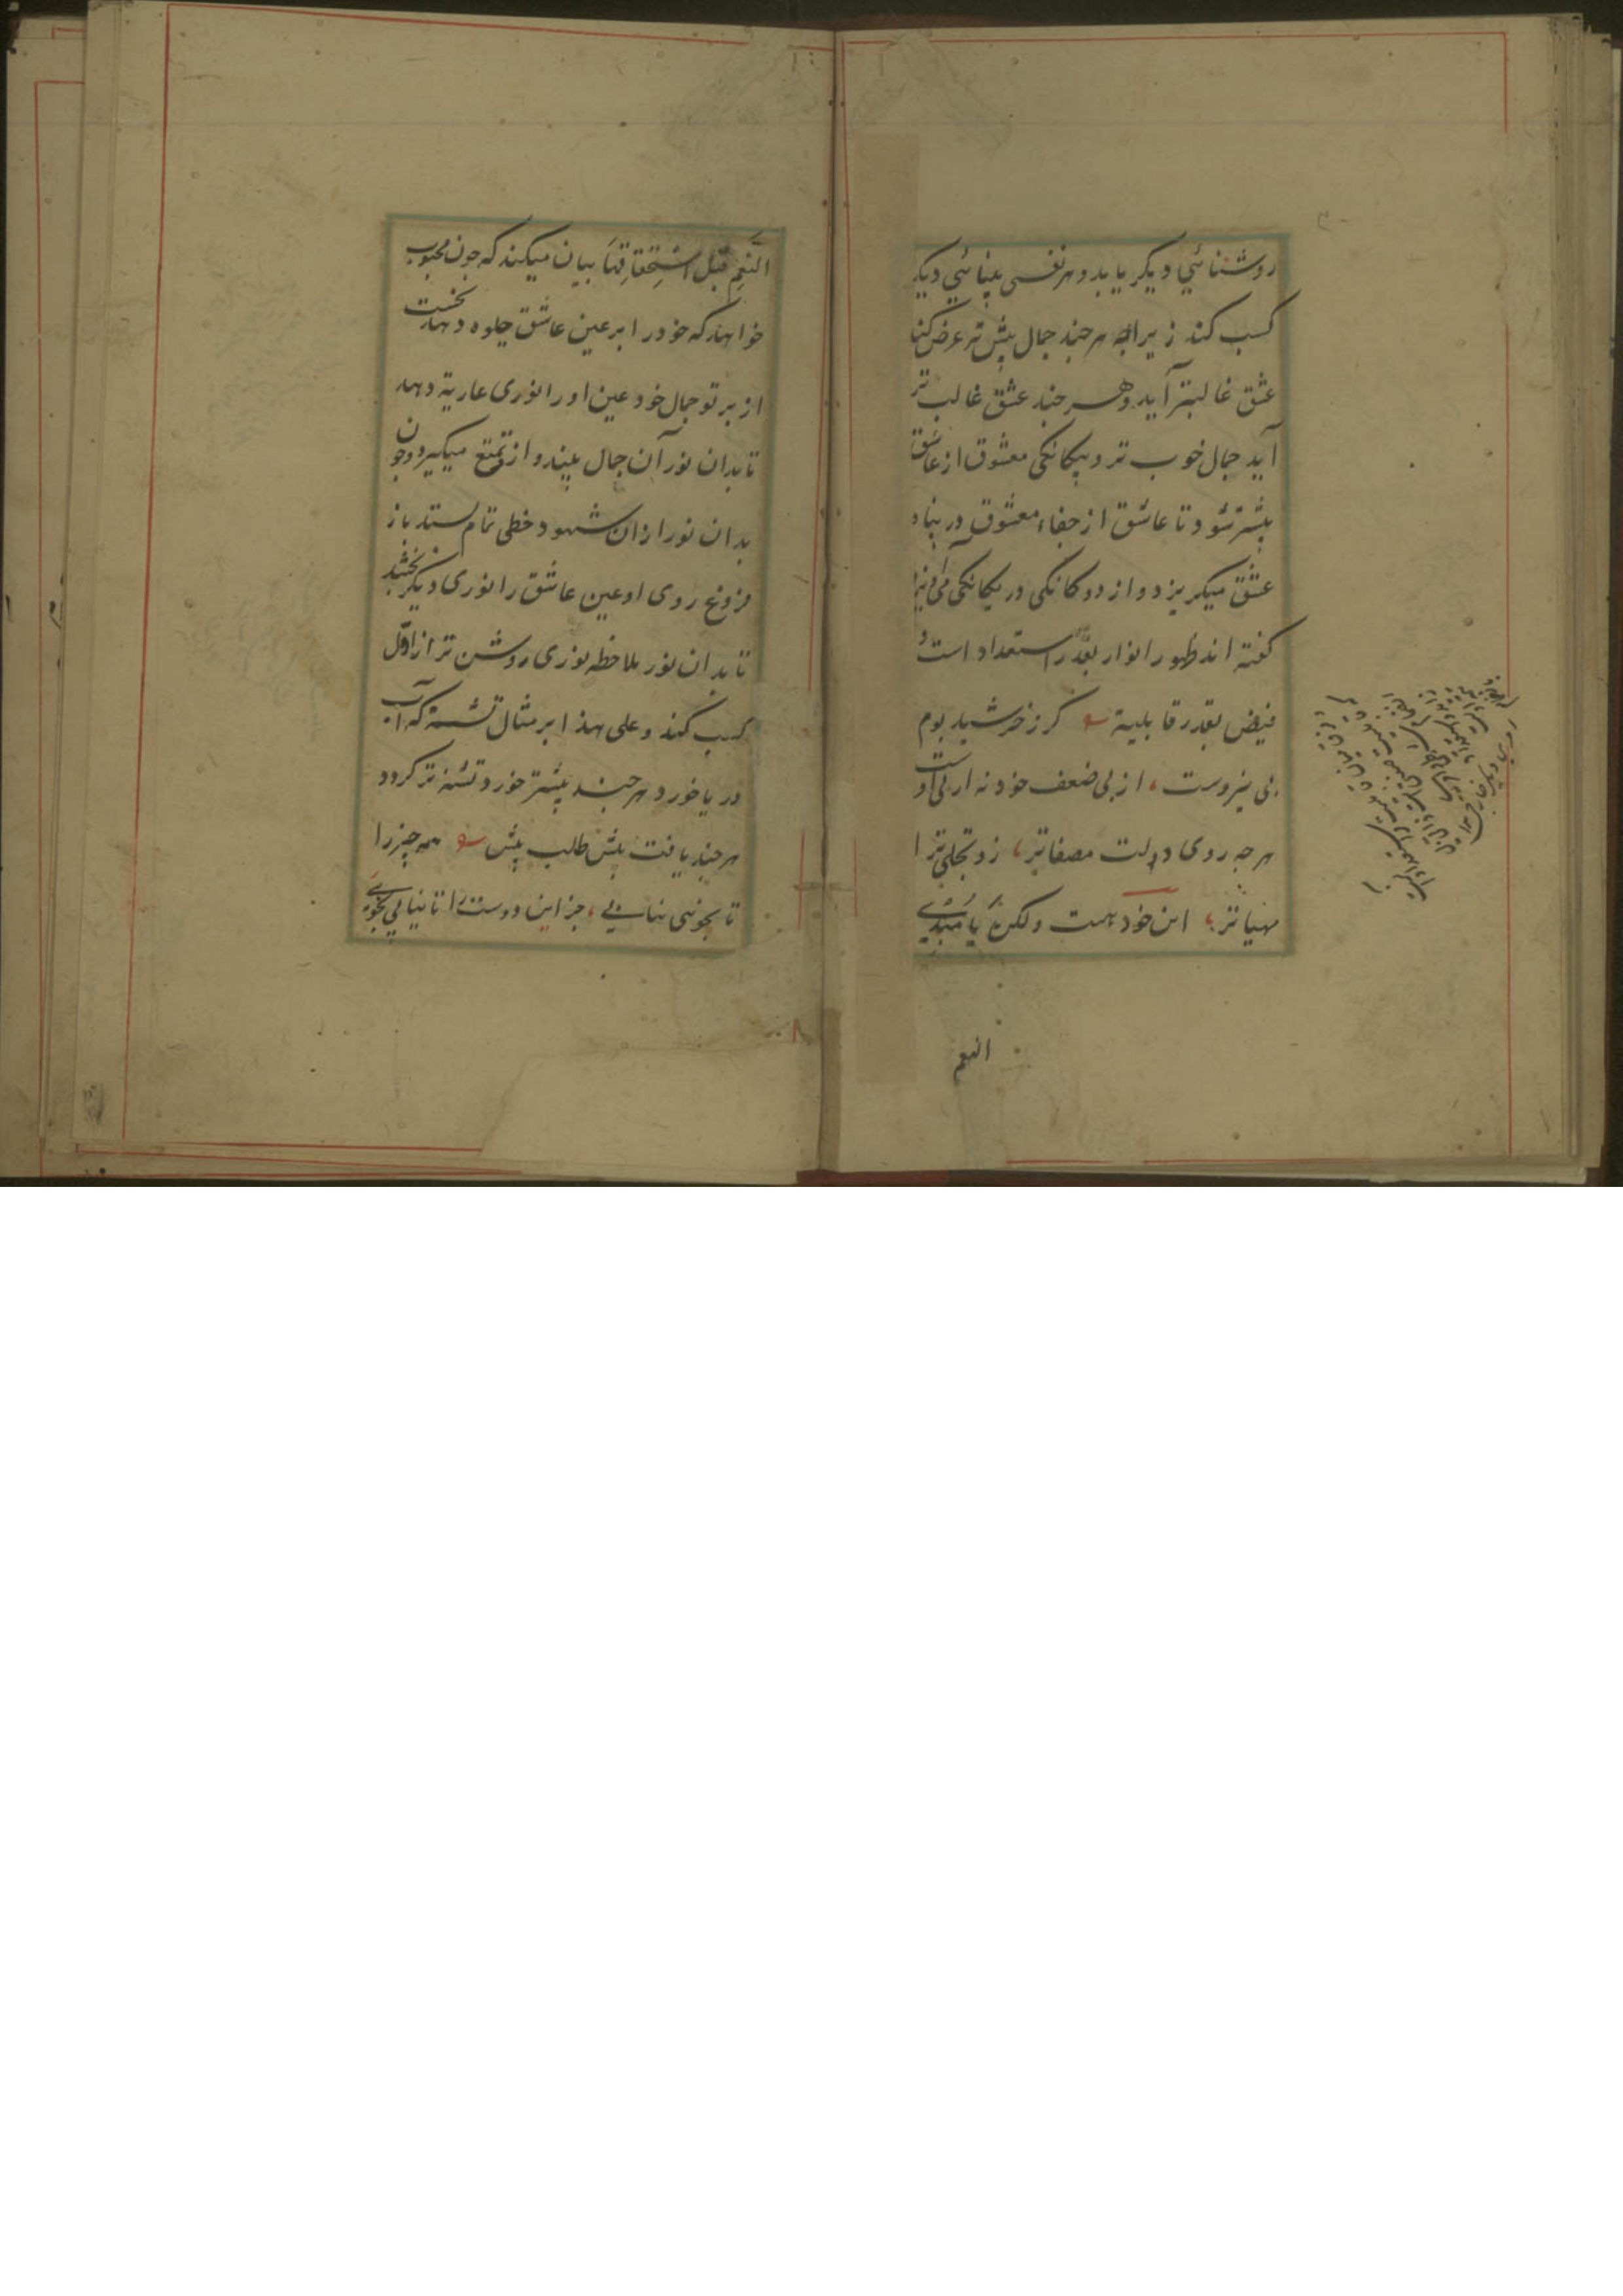 روشنائي ديكر يابد و هر نفسي بينائي ديكر
كسب كند زيراكه هر جند جمال بيش تر عرض كند
عشق غالبتر آيد و هر جند عشق غالب تر
آيد جمال خوب تر و بيكانكى معشوق از عاشق
بيشتر شود تا عاشق از جفاء معشوق در پناه
عشق ميكريزد و از دوكانكى در يكانكى مى
كفته اند ظهور انوار بقدر استعداد است و
فيض بقدر قابلية كر ز خرشيد بوم
بى نيروست از پى ضعف خود نه از پى اوست
هر جه روى دلت مصفاتر زو تجلى ترا
مهياتر اين خود هست ولكن يا مبتدئ
النعم
النعم قبل استحقاقها بيان ميكند كه جون محبوب
خواهد كه خود را بر عين عاشق جلوه دهد نخست
از پرتو جمال خود عين او را نورى عارية دهد
تا بدان نور آن جمال بيند و از تمتع ميكيرد و جون
بدان نور ازان شهود حظى تمام ستد باز
فروغ روى او عين عاشق را نورى ديكر بخشد
تا بدان نور ملاحظه نورى روشن تر از اول
كسب كند و على هذا بر مثال تشنه كه آب
دريا خورد هر جند بيشتر خورد تشنه تر كردد
هر جند يافت بيش طلب بيش همه چيز را
تا نجوئى نيابي جز اين دوست را تا نيابي نجوئي